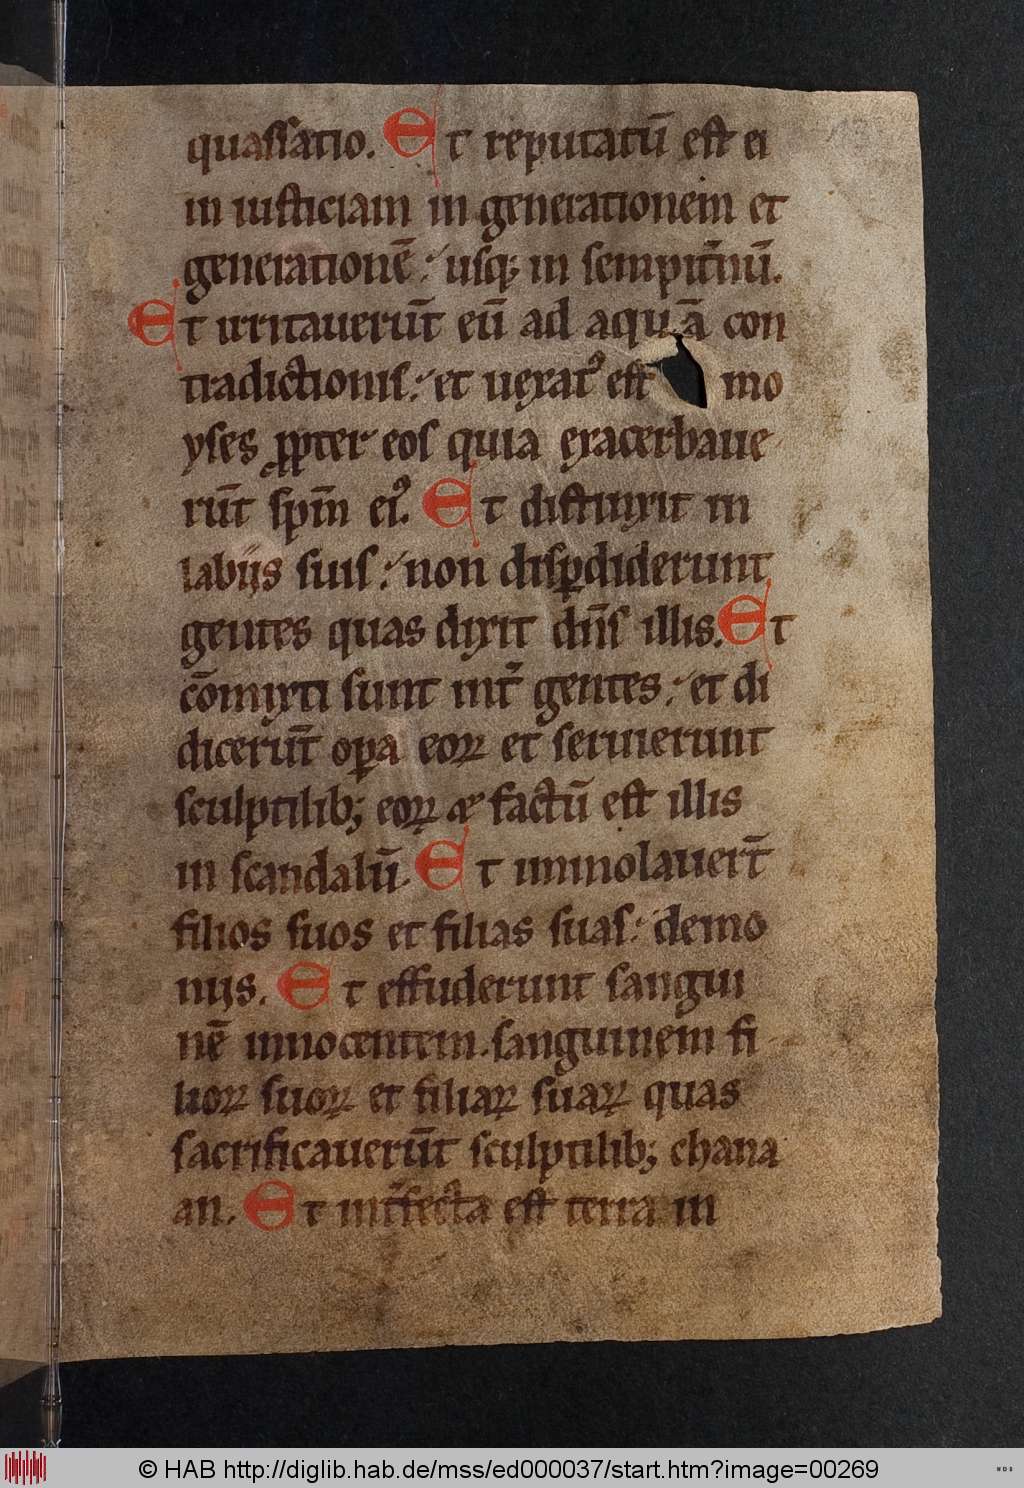 quassatio. Et reputatū est ei
in iusticiam in generationem et
generationē: usq; in sempit̄nū.
Et irritauerūt eū ad aquā con
tradictionis: et uexat᷒ est mo
yses ꝓpter eos quia exacerbaue
rūt spm̄ ei᷒. Et distinxit in
labijs suis: non disꝑdiderunt
gentes quas dixit dn̄s illis. Et
cōmixti sunt int̄ gentes: et di
dicerūt oꝑa eoꝝ et seruierunt
sculptilib; eoꝝ & factū est illis
in scandalū. Et immolauerūt
filios suos et filias suas: demo
nijs. Et effuderunt sangui
nē innocentem. sanguinem fi
lioꝝ suoꝝ et filiaꝝ suaꝝ quas
sacrificauerūt sculptilib; chana
an. Et int̄fecta est terra in
© HAB http://diglib.hab.de/mss/ed000037/start.htm?image=00269